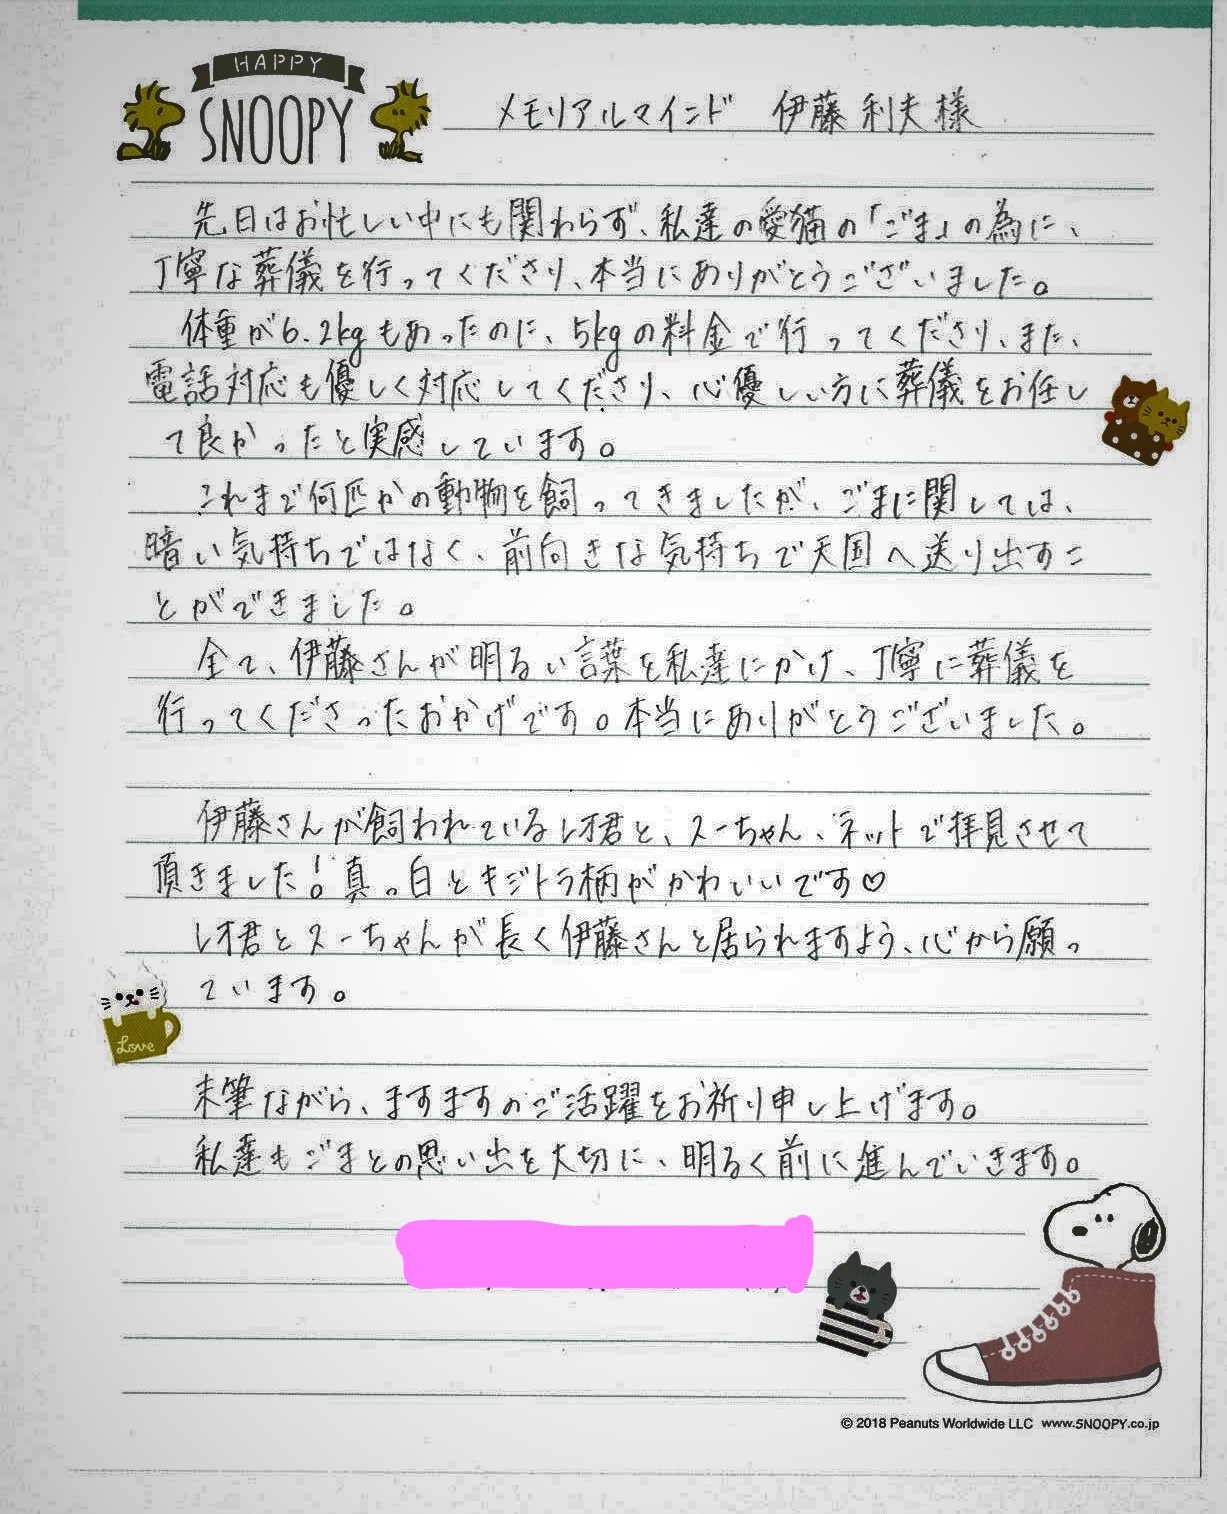 HAPPY
SNOOPY
メモリアルマインド 伊藤利夫様
先日はお忙しい中にも関わらず、私達の愛猫の「ごま」の為に、
丁寧な葬儀を行ってくださり、本当にありがとうございました。
体重が6.2kgもあったのに、5kgの料金で行ってくださり、また、
電話対応も優しく対応してくださり、心優しい方に葬儀をお任し
て良かったと実感しています。
これまで何匹かの動物を飼ってきましたが、ごまに関しては、
暗い気持ちではなく、前向きな気持ちで天国へ送り出すこ
とができました。
全て、伊藤さんが明るい言葉を私達にかけ、丁寧に葬儀を
行ってくださったおかげです。本当にありがとうございました。
伊藤さんが飼われているレオ君と、スーちゃん、ネットで拝見させて
頂きました！真っ白とキジトラ柄がかわいいです♡
レオ君とスーちゃんが長く伊藤さんと居られますよう、心から願っ
ています。
Love
末筆ながら、ますますのご活躍をお祈り申し上げます。
私達もごまとの思い出を大切に、明るく前に進んでいきます。
© 2018 Peanuts Worldwide LLC www.SNOOPY.co.jp